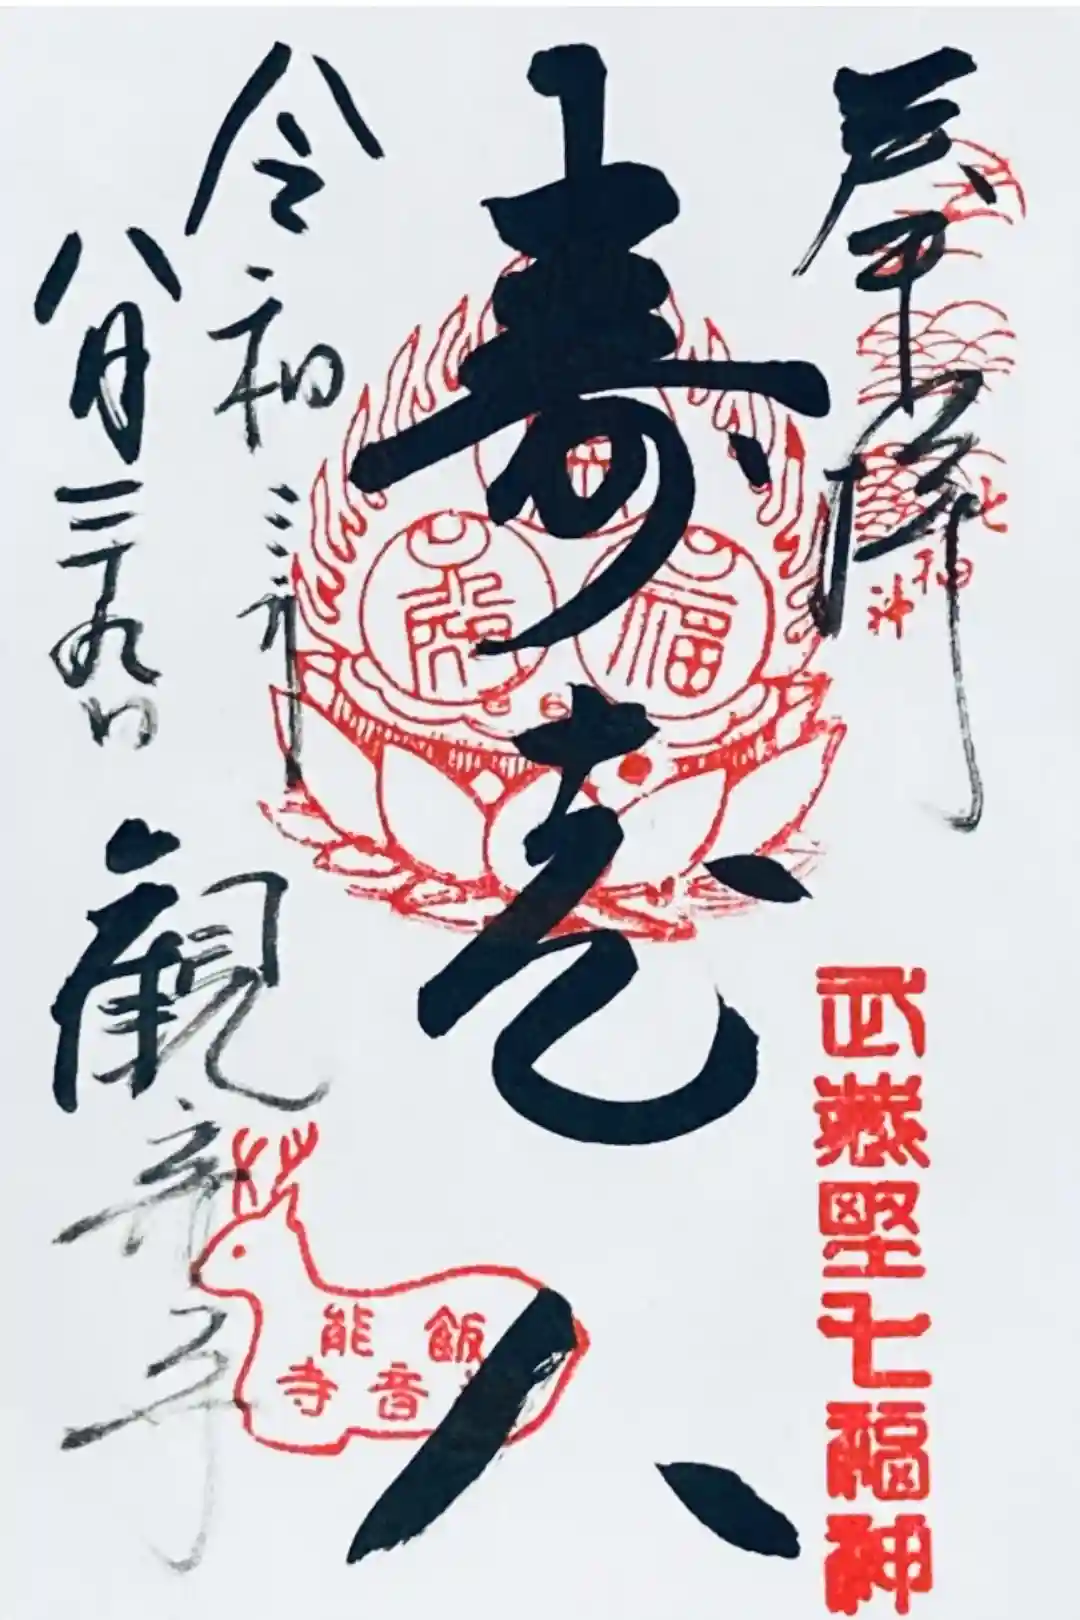 奉拝
七福神
武蔵野七福神
寿老人
福
飯能
観音寺
令和三年
八月二十九日
観音寺